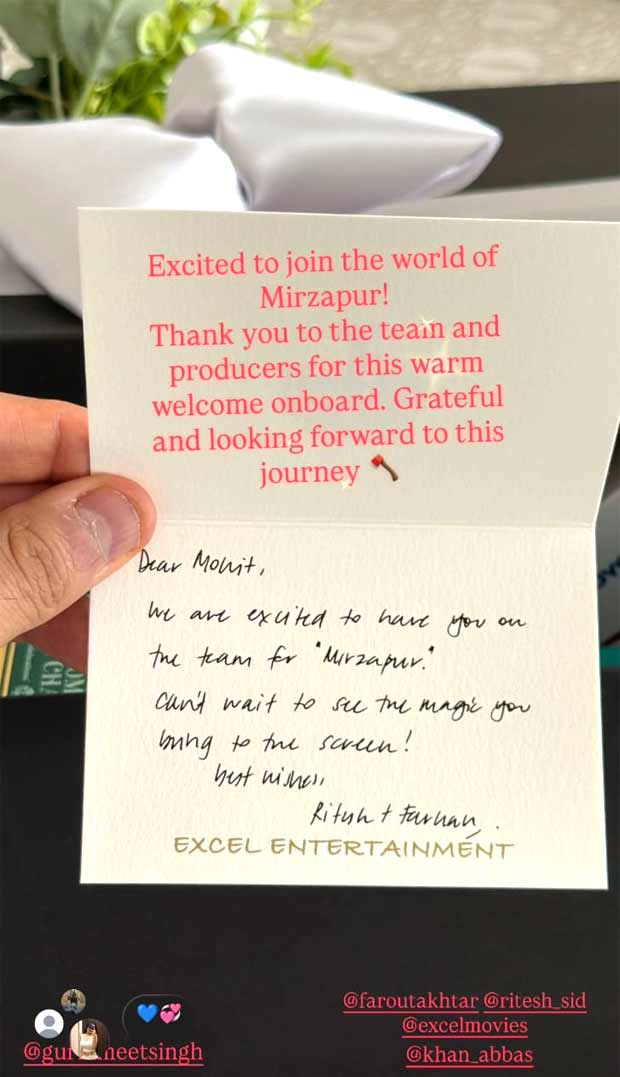 Excited to join the world of
Mirzapur!
Thank you to the team and
producers for this warm
welcome onboard. Grateful
and looking forward to this
journey
Dear Mohit,
We are excited to have you on
the team for "Mirzapur."
Can't wait to see the magic you
bring to the screen!
best wishes,
Ritesh + Farhan.
EXCEL ENTERTAINMENT
@faroutakhtar @ritesh_sid
@excelmovies
@khan_abbas